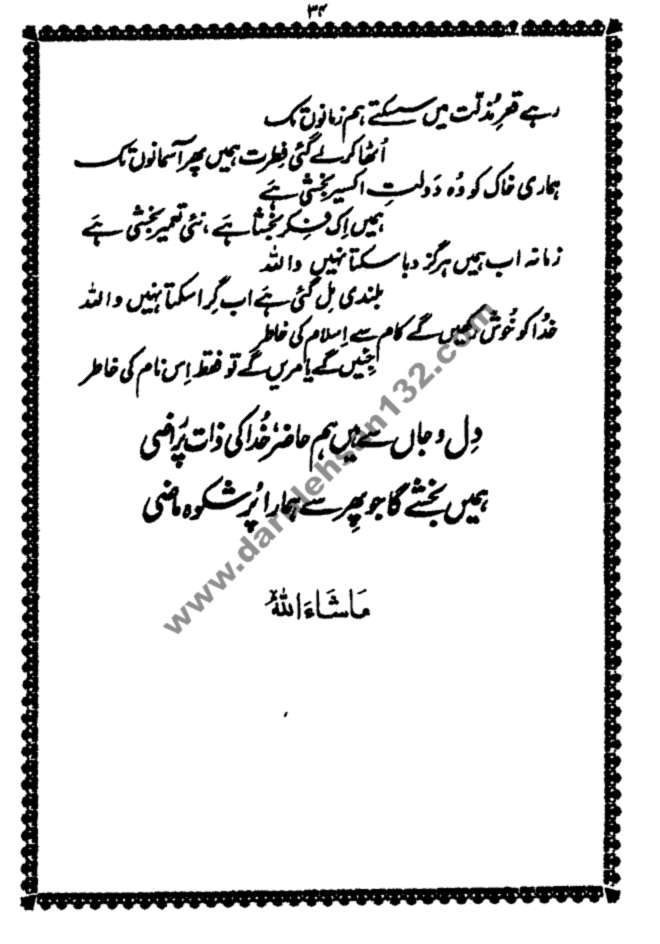 ۳۴
رہے قعرِ مذلّت میں سسکتے ہم زمانوں تک
اُٹھا کر لے گئی فِطرت ہمیں پھر آسمانوں تک
ہماری خاک کو وُہ دَولتِ اکسیر بخشی ہَے
ہمیں اِک فِکر بخشا ہَے، نئی تعمیر بخشی ہے
زمانہ اب ہمیں ہرگز دبا سکتا نہیں واللہ
بلندی مِل گئی ہَے اب گِرا سکتا نہیں واللہ
خُدا کو خُوش رکھیں گے کام سے اِسلام کی خاطر
جئیں گے یا مریں گے تو فقط اِس نام کی خاطر
دِل و جاں سے ہیں ہم حاضر خُدا کی ذات پر راضی
ہمیں بخشے گا جو پھِر سے ہمارا پُر شکوہ ماضی
مَاشَاءَ اللهُ
www.darulehsan132.com